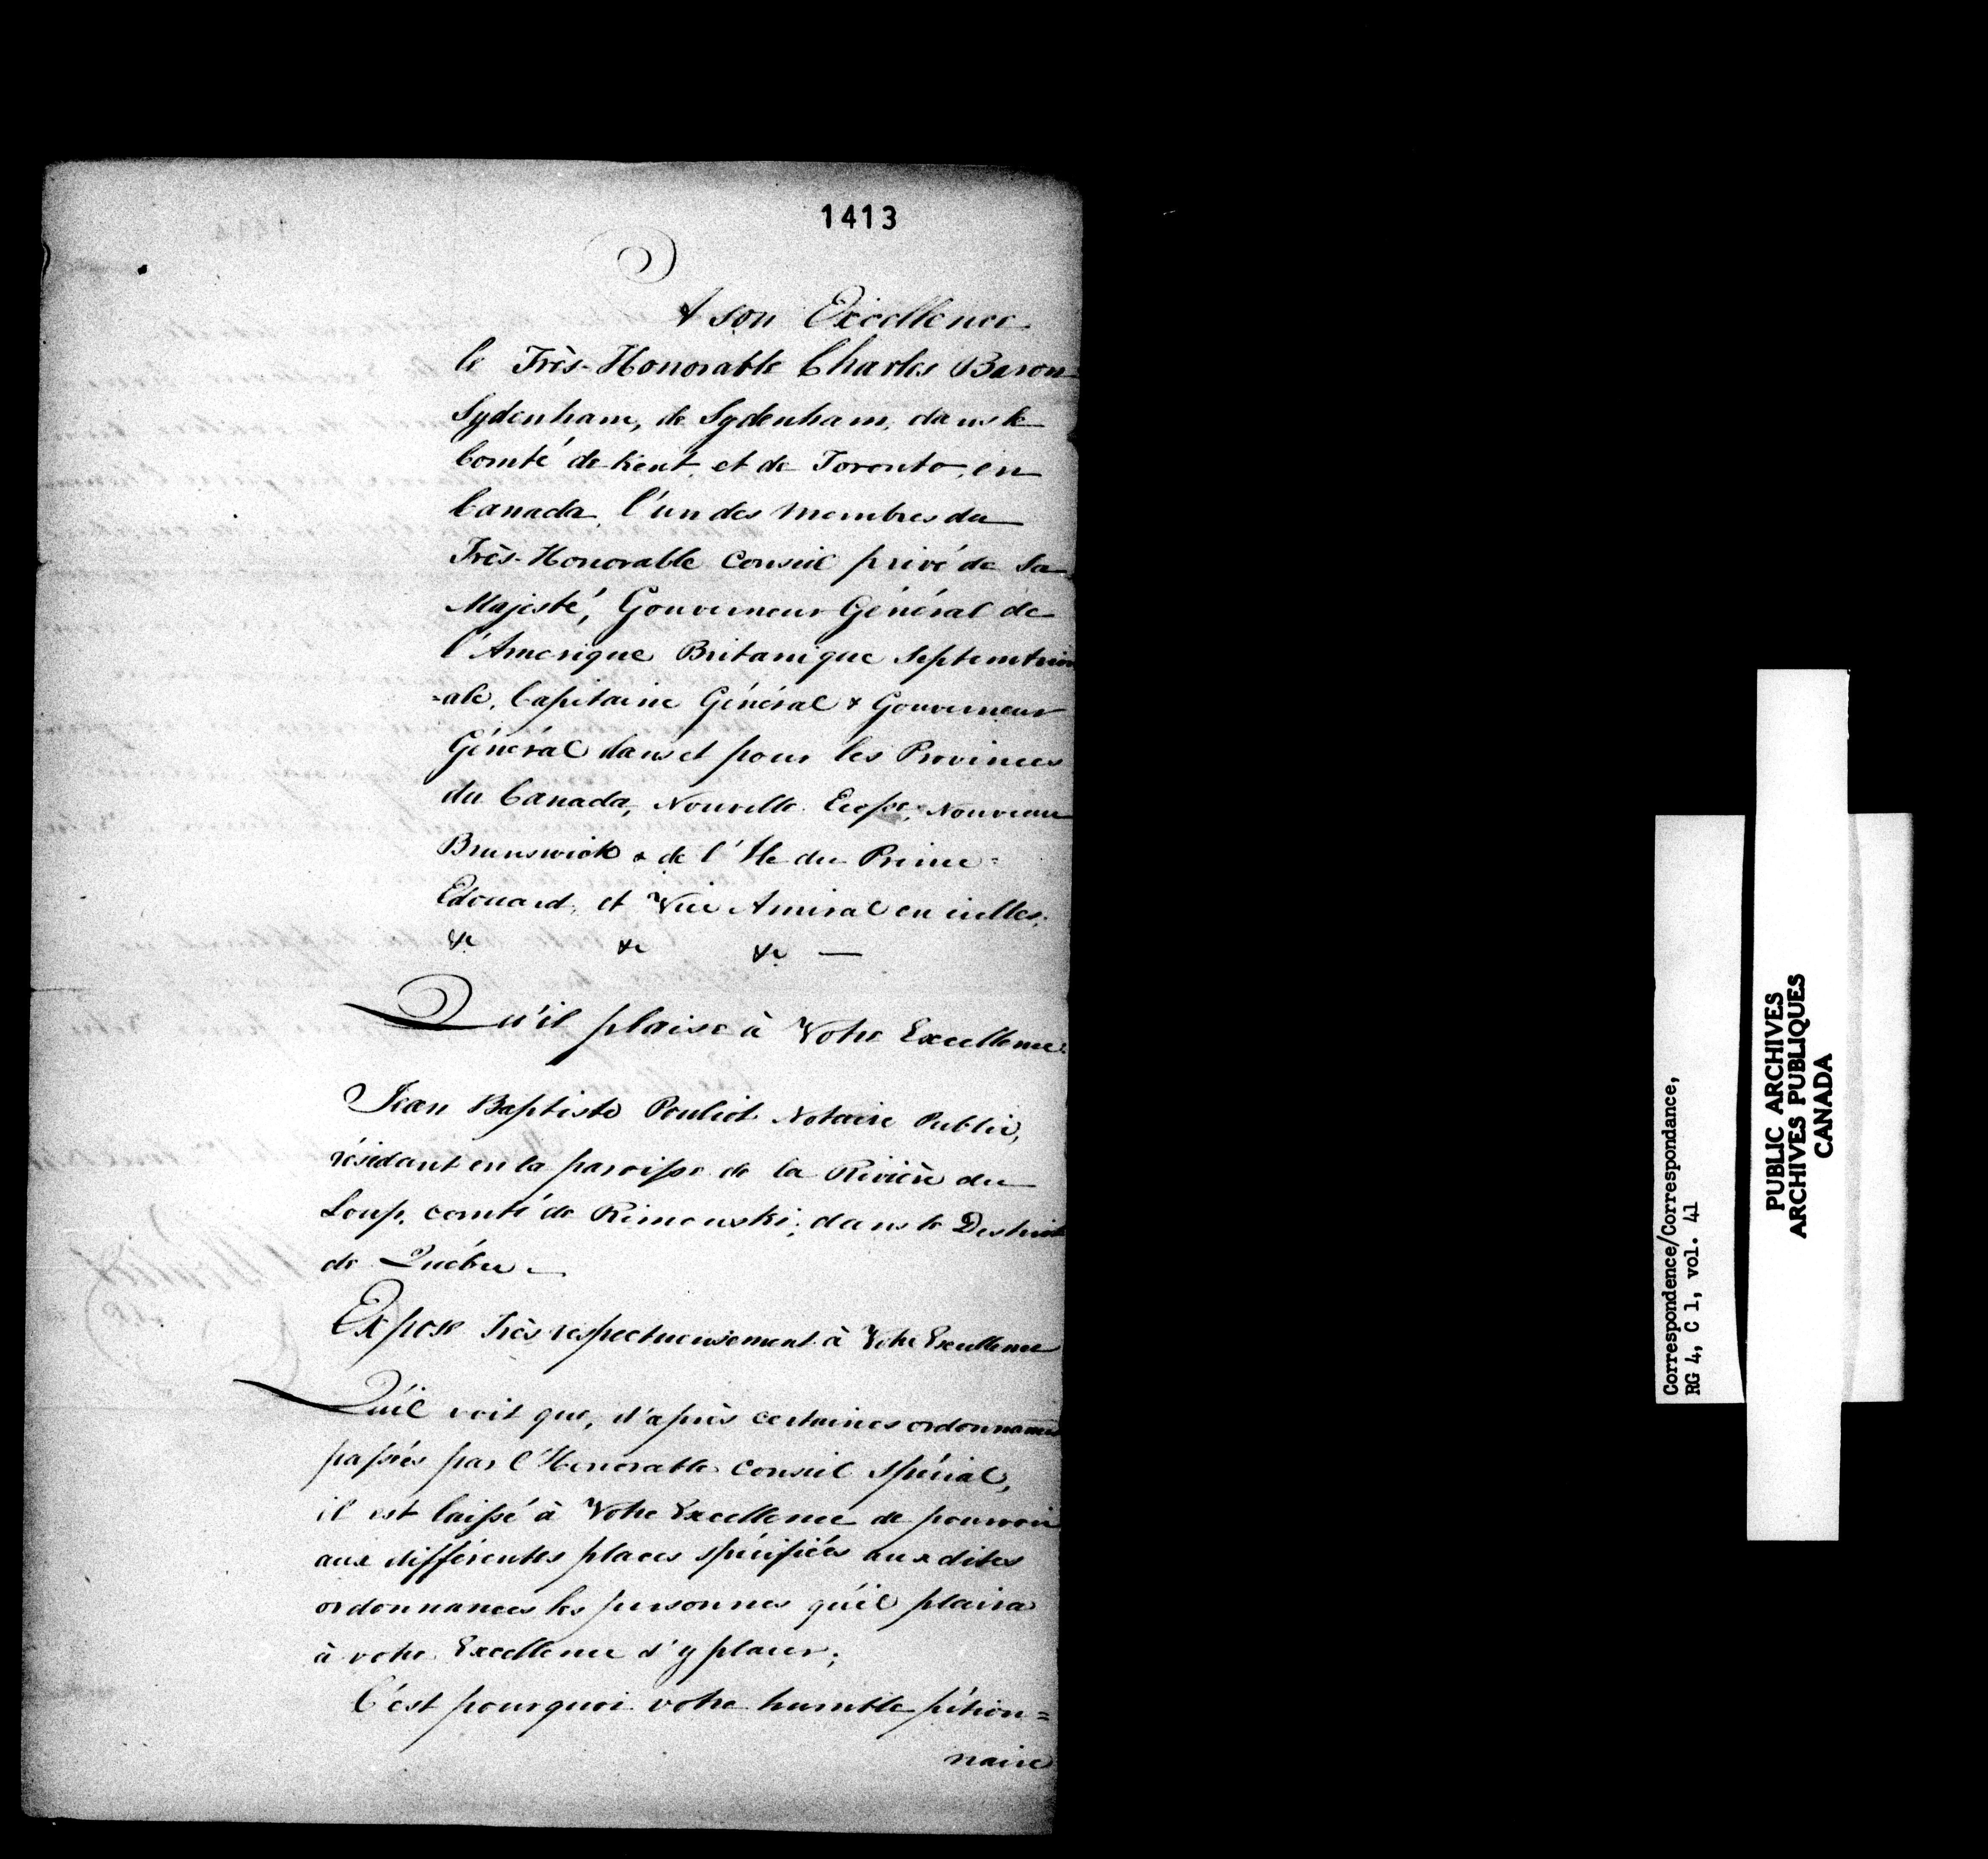 1413
A son Excellence
le Très-Honorable Charles Baron
Sydenham, de Sydenham, dans le
Comté de Kent, et de Toronto, en
Canada, l'un des Membres du
Très-Honorable Conseil privé de Sa
Majesté, Gouverneur Général de
l'Amerique Britanique Septentrion
=ale, Capitaine Général & Gouverneur
Général dans et pour les Provinces
du Canada, Nouvelle Ecosse, Nouveau
Brunswick & de l'Ile du Prince=
Edouard, et Vice Amiral en icelles,
&c &c &c —
Qu'il plaise à Votre Excellence
Jean Baptiste Pouliot Notaire Public,
résidant en la paroisse de la Rivière du
Loup, comté de Rimouski, dans le District
de Québec —
Expose Très respectueusement à Votre Excellence
Qu'il voit que, d'après certaines ordonnances
passées par l'Honorable Conseil Spécial,
il est laissé à Votre Excellence de pourvoir
aux différentes places spécifiées aux dites
ordonnances les personnes qu'il plaira
à votre Excellence d'y placer;
C'est pourquoi votre humble pétion=
naire
Correspondence/Correspondance,
RG 4, C 1, vol. 41
PUBLIC ARCHIVES
ARCHIVES PUBLIQUES
CANADA